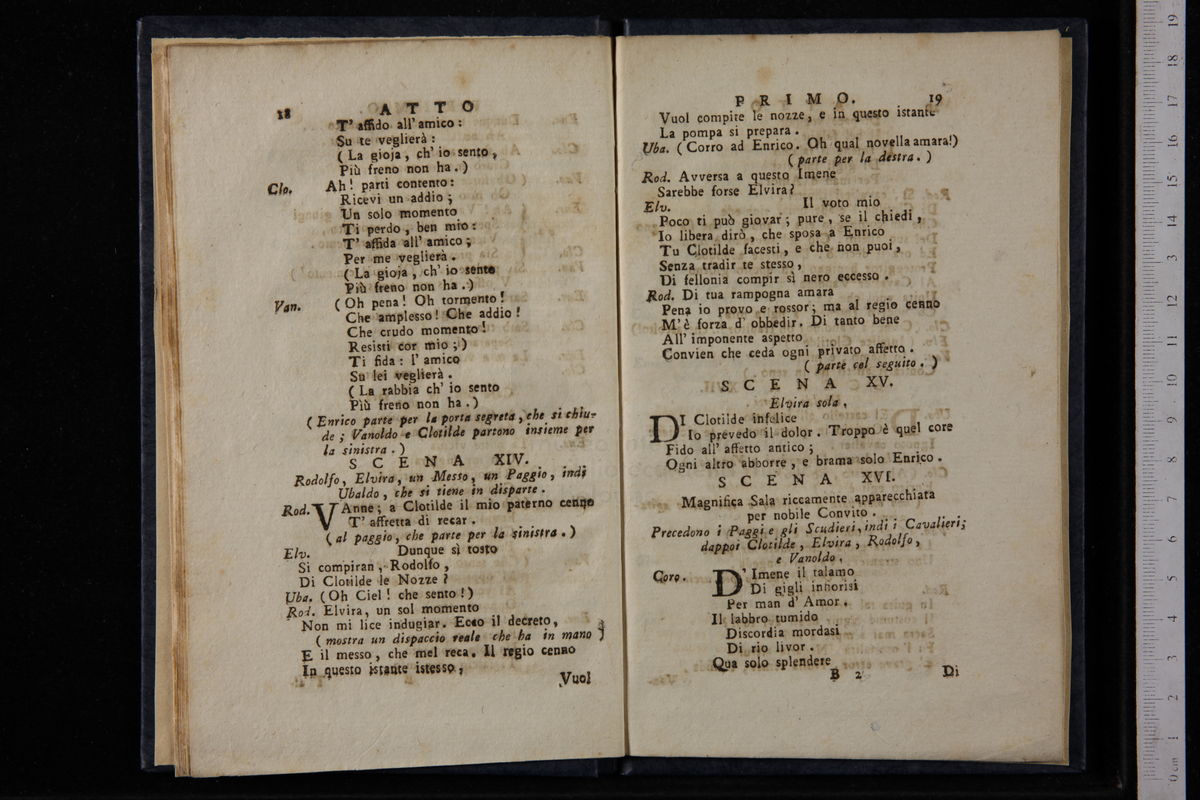 18 ATTO
T' affido all' amico :
Su te veglierà :
( La gioja , ch' io sento ,
Più freno non ha . )
Clo. Ah ! parti contento :
Ricevi un addio ;
Un solo momento
Ti perdo , ben mio :
T' affida all' amico ;
Per me veglierà .
( La gioja , ch' io sento
Più freno non ha . )
Van. ( Oh pena ! Oh tormento !
Che amplesso ! Che addio !
Che crudo momento !
Resisti cor mio ; )
Ti fida : l' amico
Su lei veglierà .
( La rabbia ch' io sento
Più freno non ha . )
( Enrico parte per la porta segreta , che si chiu-
de ; Vanoldo e Clotilde partono insieme per
la sinistra . )
SCENA XIV.
Rodolfo, Elvira, un Messo, un Paggio, indi
Ubaldo, che si tiene in disparte .
Rod. VAnne ; a Clotilde il mio paterno cenno
T' affretta di recar .
( al paggio, che parte per la sinistra . )
Elv. Dunque sì tosto
Si compiran , Rodolfo ,
Di Clotilde le Nozze ?
Uba. ( Oh Ciel ! che sento ! )
Rod. Elvira, un sol momento
Non mi lice indugiar. Ecco il decreto,
( mostra un dispaccio reale che ha in mano )
E il messo , che mel reca. Il regio cenno
In questo istante istesso ,
Vuol
PRIMO. 19
Vuol compite le nozze , e in questo istante
La pompa si prepara .
Uba. ( Corro ad Enrico. Oh qual novella amara! )
( parte per la destra . )
Rod. Avversa a questo Imene
Sarebbe forse Elvira ?
Elv. Il voto mio
Poco ti può giovar ; pure , se il chiedi ,
Io libera dirò , che sposa a Enrico
Tu Clotilde facesti , e che non puoi ,
Senza tradir te stesso ,
Di fellonia compir sì nero eccesso .
Rod. Di tua rampogna amara
Pena io provo e rossor ; ma al regio cenno
M' è forza d' obbedir. Di tanto bene
All' imponente aspetto
Convien che ceda ogni privato affetto .
( parte col seguito . )
SCENA XV.
Elvira sola .
DI Clotilde infelice
Io prevedo il dolor . Troppo è quel core
Fido all' affetto antico ;
Ogni altro abborre , e brama solo Enrico .
SCENA XVI.
Magnifica Sala riccamente apparecchiata
per nobile Convito .
Precedono i Paggi e gli Scudieri, indi i Cavalieri ;
dappoi Clotilde , Elvira , Rodolfo ,
e Vanoldo .
Coro. D' Imene il talamo
Di gigli infiorisi
Per man d' Amor .
Il labbro tumido
Discordia mordasi
Di rio livor .
Qua solo splendere
B 2 Di
0 cm 1 2 3 4 5 6 7 8 9 10 11 12 13 14 15 16 17 18 19